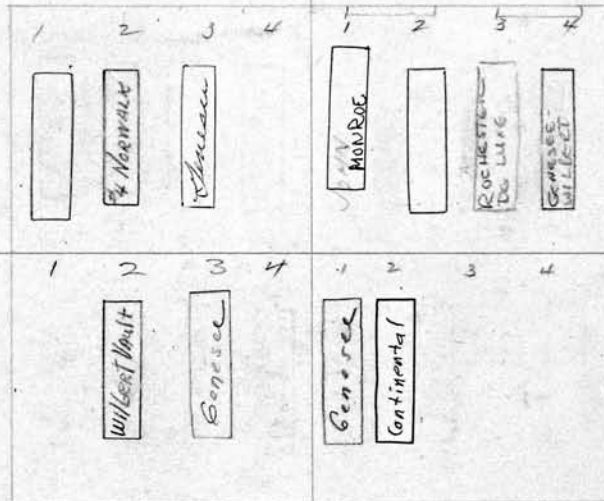 1 2 3 4
NORWALK
Genesee
1 2 3 4
JOHN
MONROE
ROCHESTER
DE LUXE
GENESEE-
WILBERT
1 2 3 4
Wilbert Vault
Genesee
1 2 3 4
Genesee
Continental